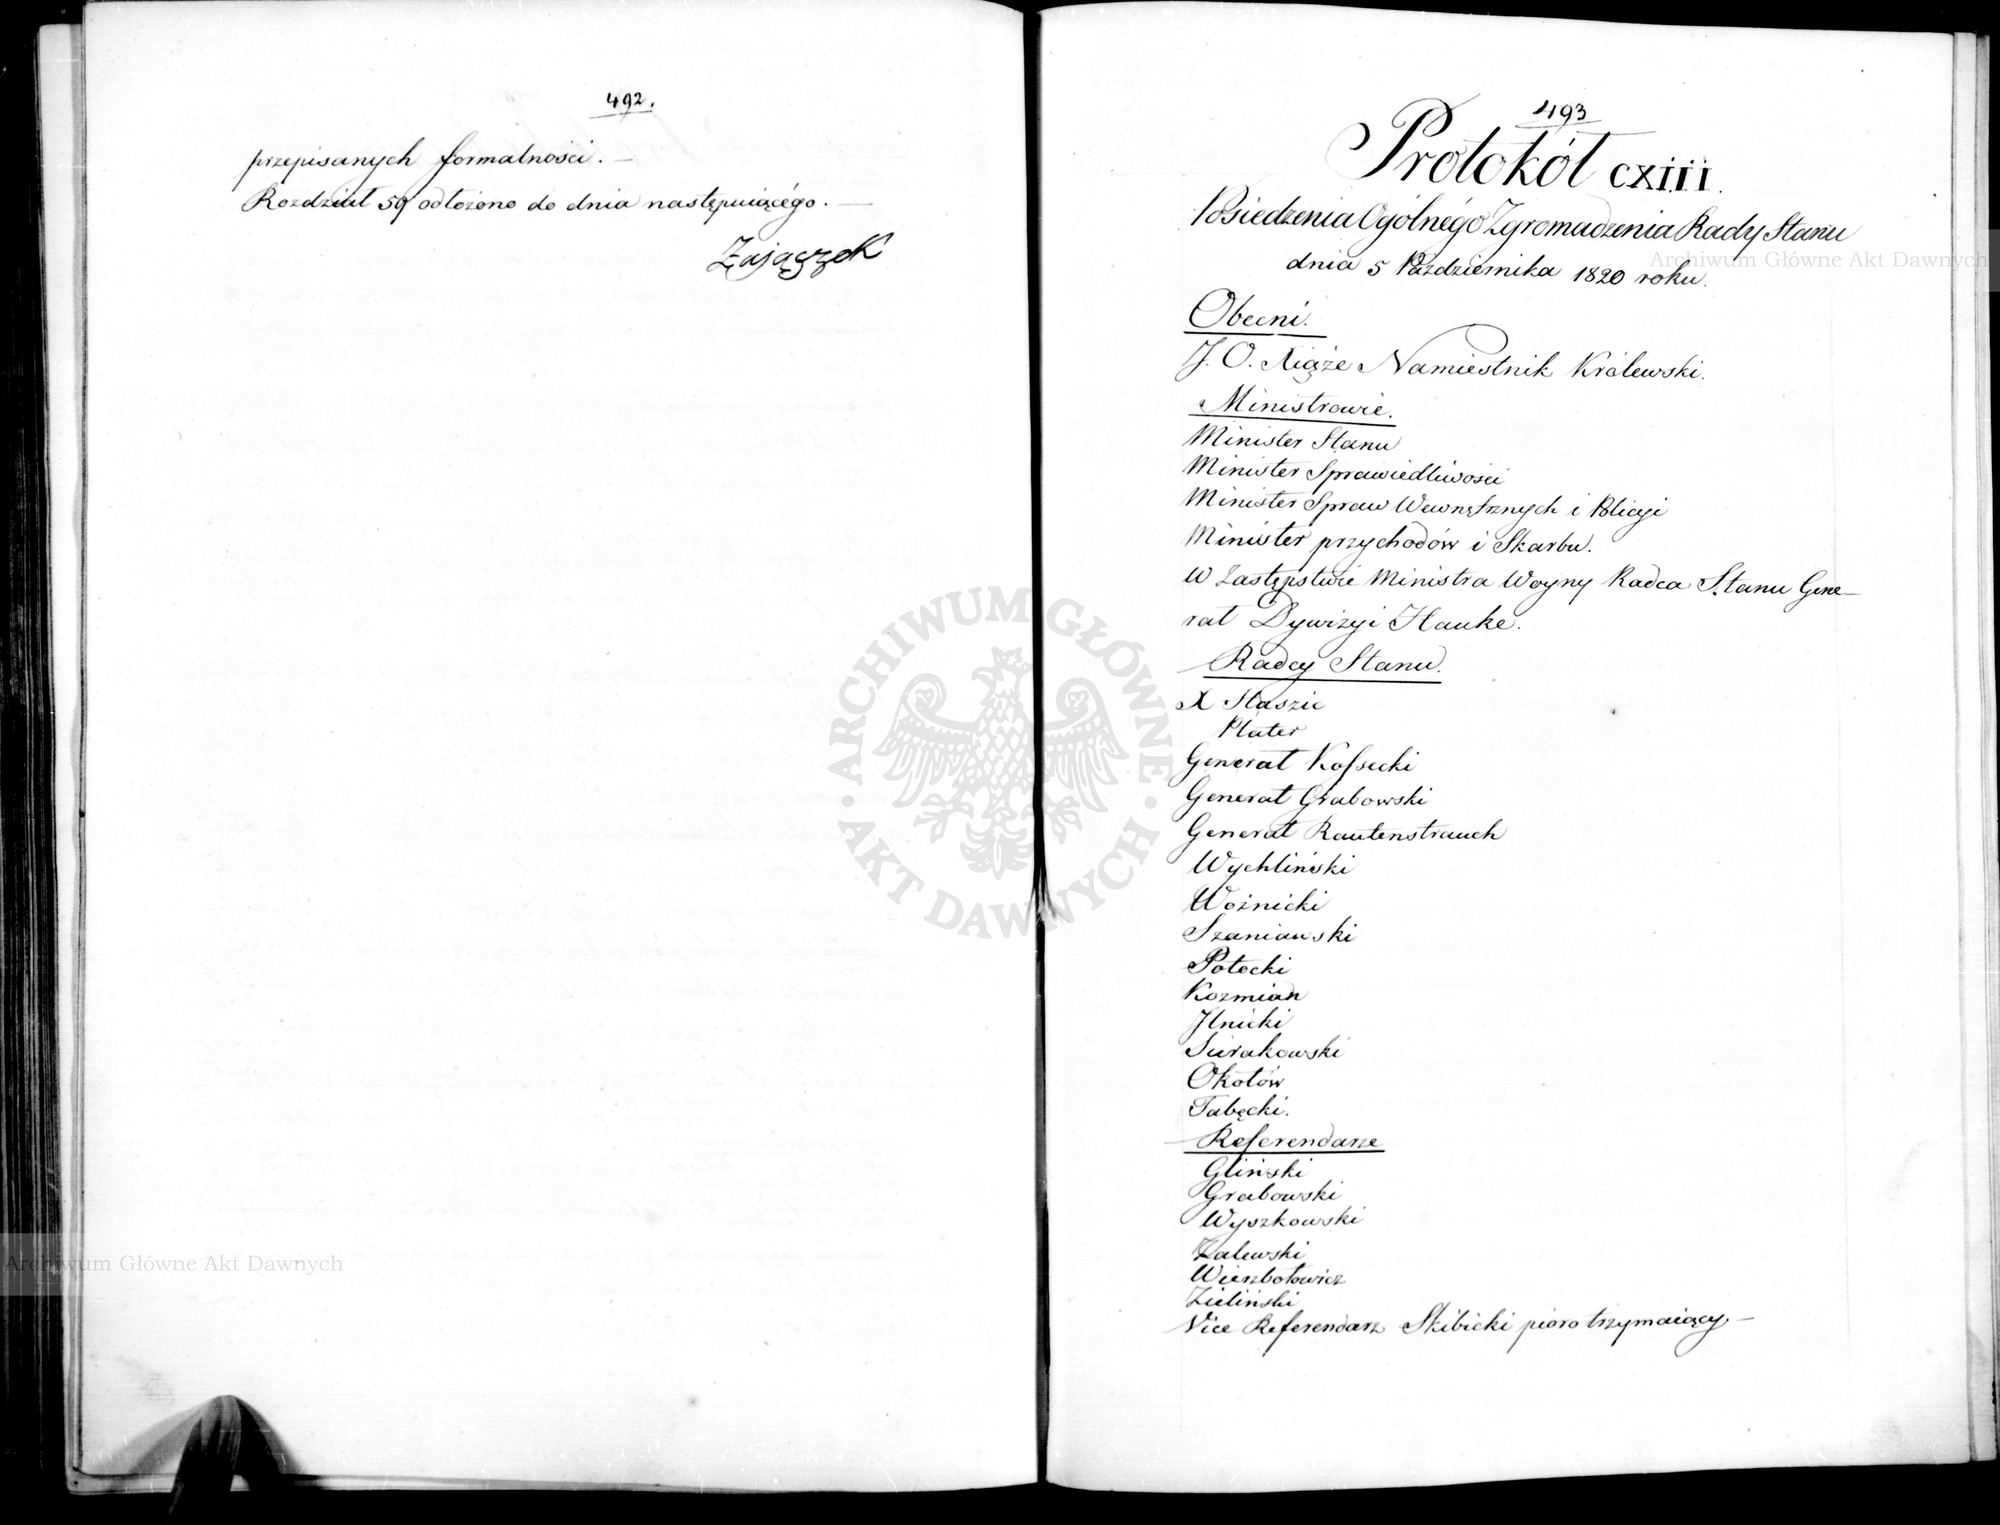 492.
przepisanych formalności. —
Rozdział 59 odłożono do dnia następuiącego. —
Zajączek
493
Protokół CXIII.
Posiedzenia Ogólnego Zgromadzenia Rady Stanu
dnia 5 Października 1820 roku.
Obecni.
J. O. Xiąże Namiestnik Królewski.
Ministrowie.
Minister Stanu
Minister Sprawiedliwości
Minister Spraw Wewnętrznych i Policyi
Minister przychodów i Skarbu.
W Zastępstwie Ministra Woyny Radca Stanu Gene—
rał Dywizyi Hauke.
Radcy Stanu.
X Staszic
Plater
Generał Kossecki
Generał Grabowski
Generał Rautenstrauch
Wychliński
Woźnicki
Szaniawski
Potocki
Kozmian
Jlnicki
Surakowski
Okołów
Tabęcki.
Referendarze
Gliński
Grabowski
Wyszkowski
Zalewski
Wierzbołowicz
Zieliński
Vice Referendarz Skibicki pioro trzymaiący —
ARCHIWUM GŁÓWNE
AKT DAWNYCH
Archiwum Główne Akt Dawnych
Archiwum Główne Akt Dawnych